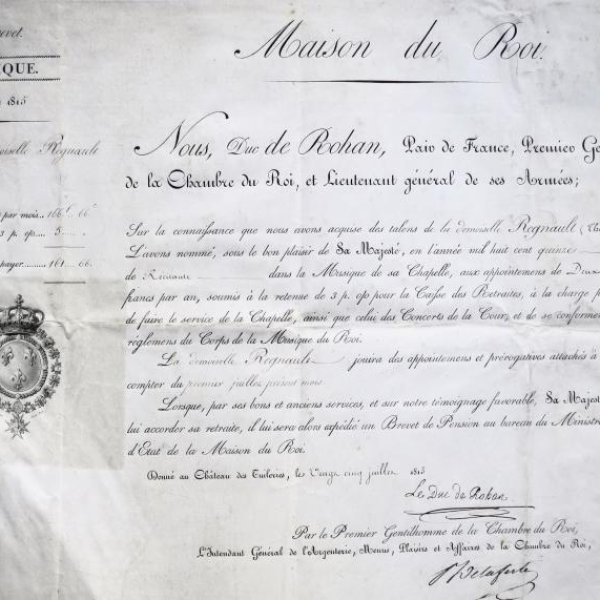 Maison du Roi.
evet.
IQUE.
1815
oiselle Regnault
par mois.. 166f. 66c.
3 p. o/o.... 5
payer......... 161 66
Nous, Duc de Rohan, Pair de France, Premier Ge
de la Chambre du Roi, et Lieutenant général de ses Armées;
Sur la connaissance que nous avons acquise des talens de la demoiselle Regnault
L'avons nommé, sous le bon plaisir de Sa Majesté, en l'année mil huit cent quinze
de dans la Musique de sa Chapelle, aux appointemens de Deux
francs par an, soumis à la retenue de 3 p. o/o pour la Caisse des Retraites, à la charge p
de faire le service de la Chapelle, ainsi que celui des Concerts de la Cour, et de se conformer
réglemens du Corps de la Musique du Roi.
La demoiselle Regnault jouira des appointemens et prérogatives attachés à
compter du premier juillet présent mois
Lorsque, par ses bons et anciens services, et sur notre témoignage favorable, Sa Majest
lui accorder sa retraite, il lui sera alors expédié un Brevet de Pension au bureau du Ministr
d'Etat de la Maison du Roi.
Donné au Château des Tuileries, le Vingt cinq juillet 1815
Le Duc de Rohan
Par le Premier Gentilhomme de la Chambre du Roi,
L'Intendant Général de l'Argenterie, Menus, Plaisirs et Affaires de la Chambre du Roi,